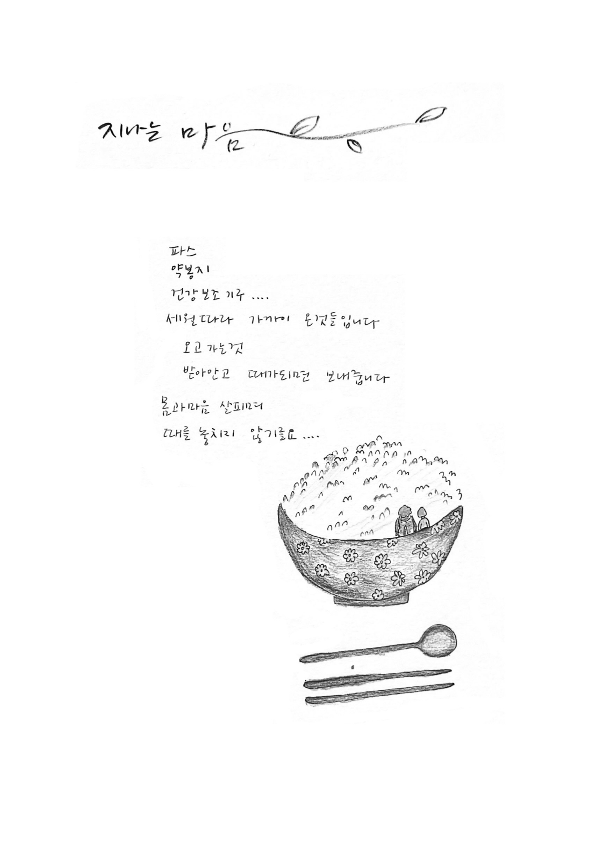 지나는 마음
파스
약봉지
건강보조 기구 ....
세월따라 가까이 온것들입니다
오고 가는것
받아안고 때가되면 보내줍니다
몸과마음 살피며
때를 놓치지 않기를요 ....